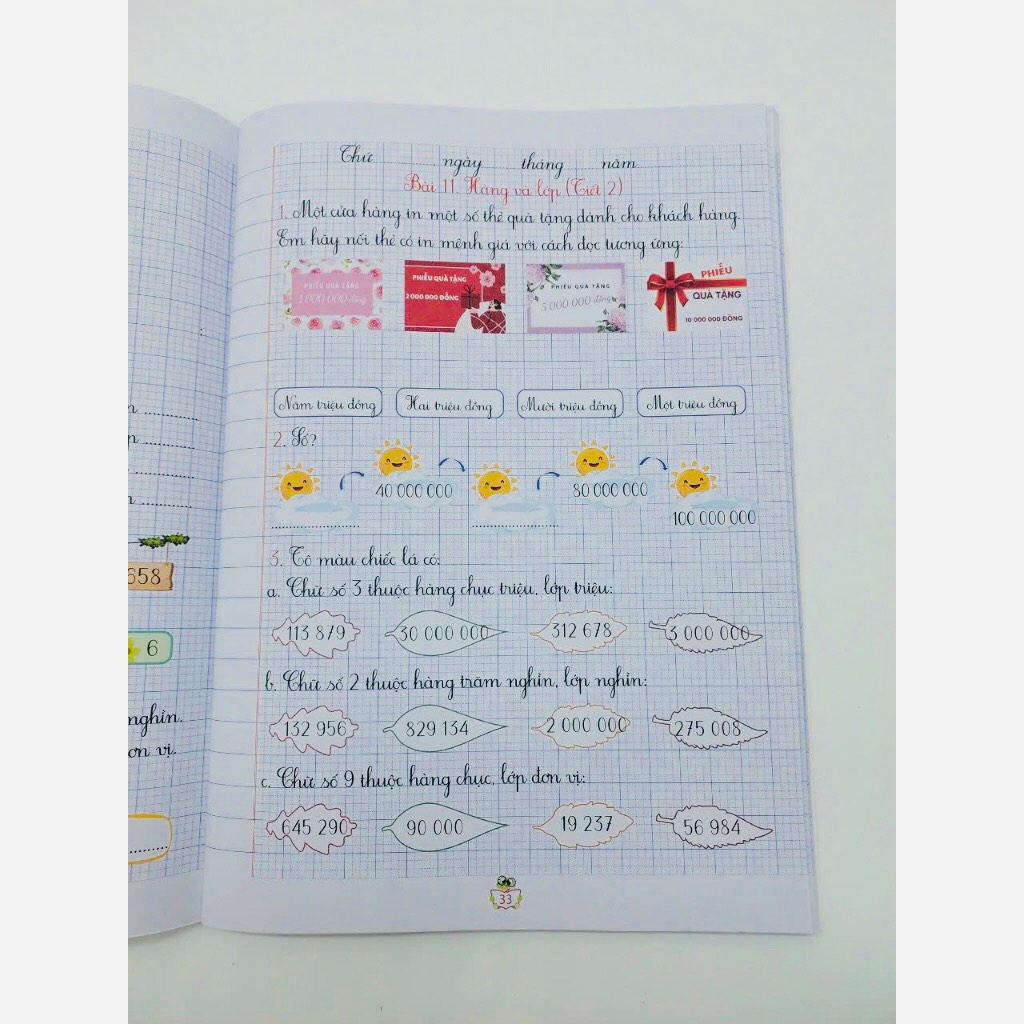 Thứ ngày tháng năm
Bài 11. Hàng và lớp (Tiết 2)
1. Một cửa hàng in một số thẻ quà tặng dành cho khách hàng.
Em hãy nối thẻ có in mệnh giá với cách đọc tương ứng:
PHIẾU QUÀ TẶNG
1 000 000 đồng
PHIẾU QUÀ TẶNG
2 000 000 ĐỒNG
PHIẾU QUÀ TẶNG
5 000 000 đồng
PHIẾU
QUÀ TẶNG
10 000 000 ĐỒNG
Năm triệu đồng Hai triệu đồng Mười triệu đồng Một triệu đồng
2. Số?
40 000 000 80 000 000
.................... .................... 100 000 000
3. Tô màu chiếc lá có:
a. Chữ số 3 thuộc hàng chục triệu, lớp triệu:
113 879 30 000 000 312 678 3 000 000
b. Chữ số 2 thuộc hàng trăm nghìn, lớp nghìn:
132 956 829 134 2 000 000 275 008
c. Chữ số 9 thuộc hàng chục, lớp đơn vị:
645 290 90 000 19 237 56 984
33
658
6
nghìn.
đơn vị.